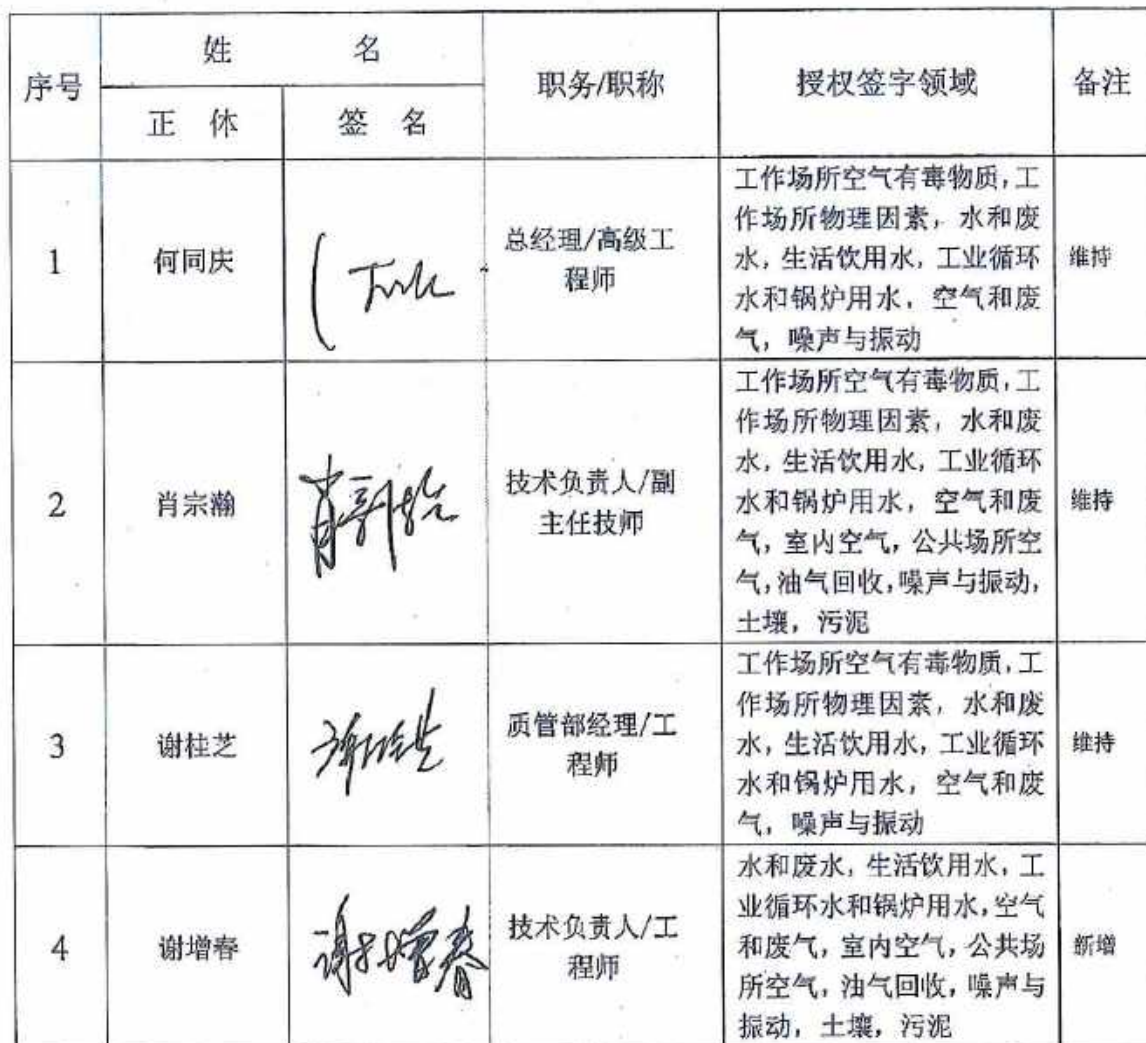 序号
姓 名
职务/职称
授权签字领域
备注
正 体
签 名
1
何同庆
总经理/高级工
程师
工作场所空气有毒物质,工
作场所物理因素,水和废
水,生活饮用水,工业循环
水和锅炉用水,空气和废
气,噪声与振动
维持
2
肖宗瀚
技术负责人/副
主任技师
工作场所空气有毒物质,工
作场所物理因素,水和废
水,生活饮用水,工业循环
水和锅炉用水,空气和废
气,室内空气,公共场所空
气,油气回收,噪声与振动,
土壤,污泥
维持
3
谢桂芝
质管部经理/工
程师
工作场所空气有毒物质,工
作场所物理因素,水和废
水,生活饮用水,工业循环
水和锅炉用水,空气和废
气,噪声与振动
维持
4
谢增春
谢增春
技术负责人/工
程师
水和废水,生活饮用水,工
业循环水和锅炉用水,空气
和废气,室内空气,公共场
所空气,油气回收,噪声与
振动,土壤,污泥
新增